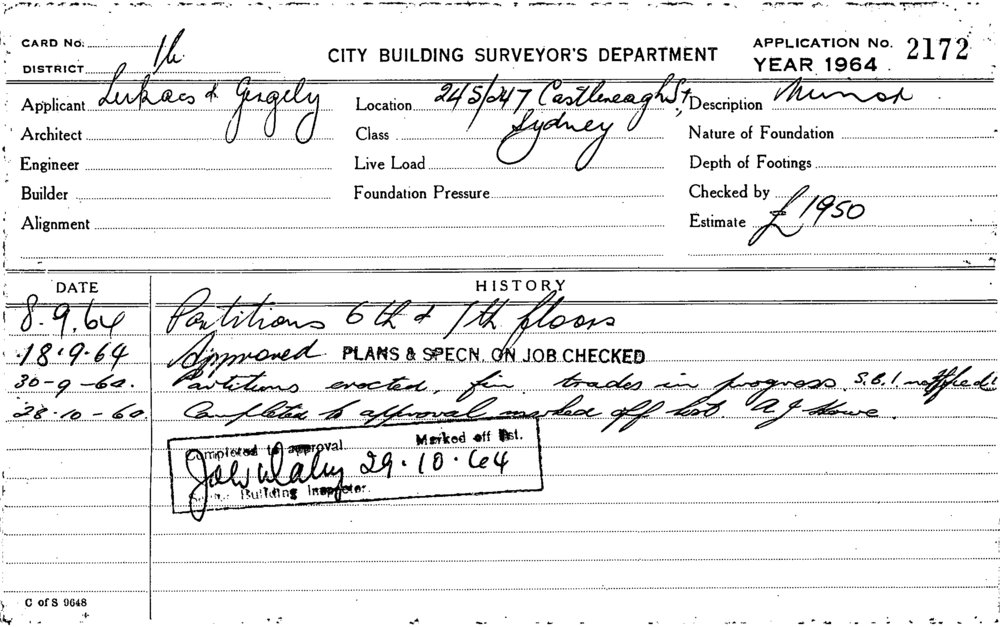 CARD No.
DISTRICT 1h
CITY BUILDING SURVEYOR'S DEPARTMENT
APPLICATION No. 2172
YEAR 1964
Applicant Lukacs & Gergely
Location 245/247 Castlereagh St, Sydney
Description Minor
Architect
Class
Nature of Foundation
Engineer
Live Load
Depth of Footings
Builder
Foundation Pressure
Checked by
Alignment
Estimate £1950
DATE HISTORY
8.9.64 Partitions 6th & 7th floors
18.9.64 Approved PLANS & SPECN. ON JOB CHECKED
30-9-64. Partitions erected, fin trades in progress. S.B.I. notified.
28-10-64. Completed to approval marked off list. A J Howe.
Completed to approval. Marked off list.
29.10.64
Building Inspector.
C of S 9648